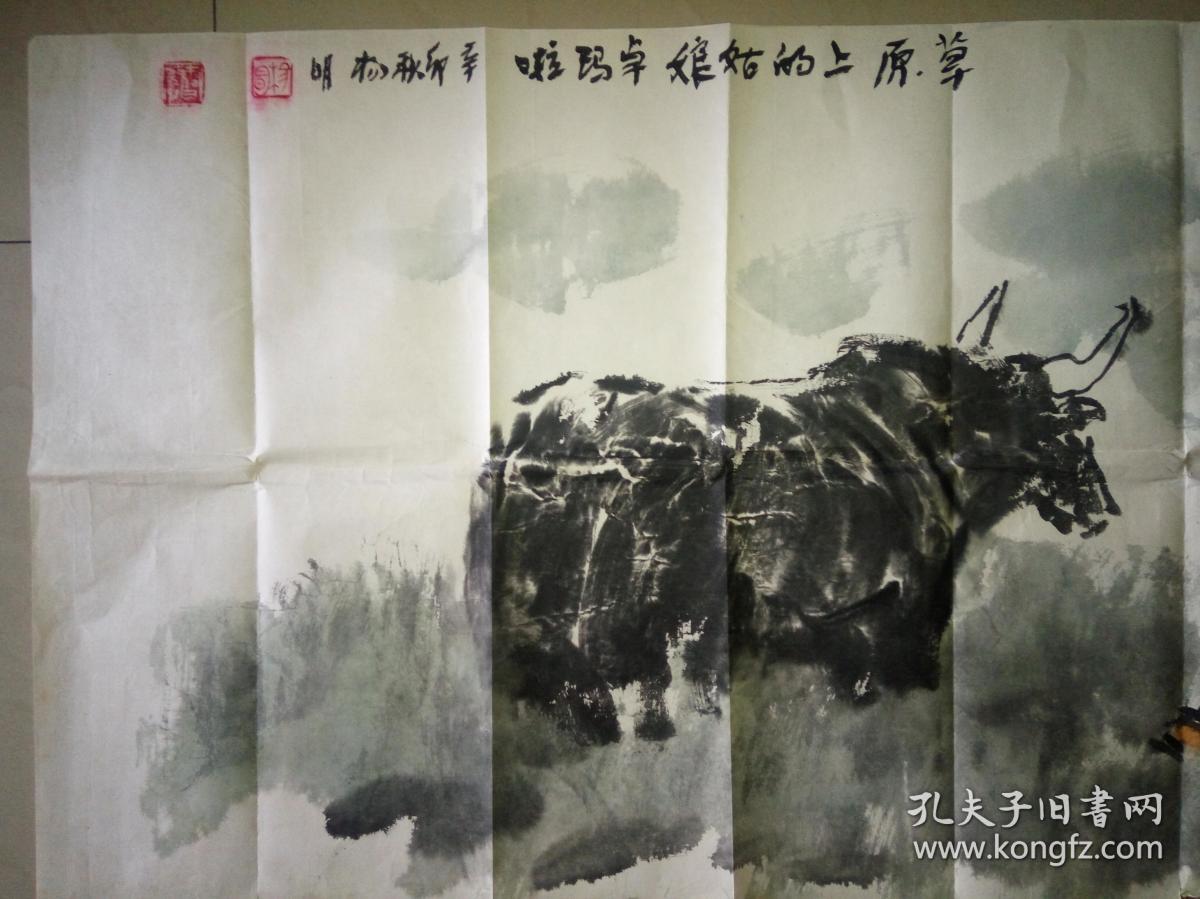 草原上的姑娘卓玛啦 辛卯秋杨明
孔夫子旧書网
www.kongfz.com